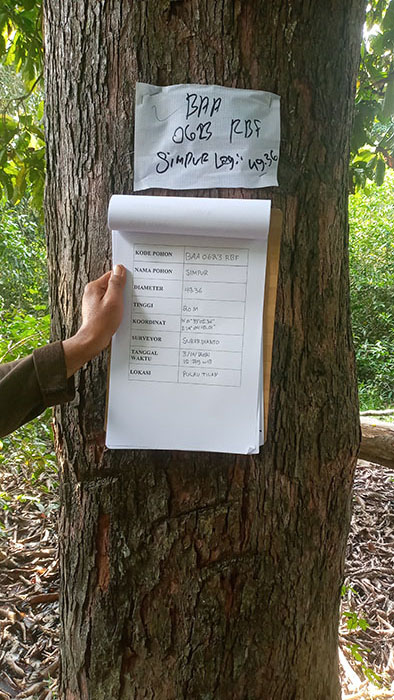 BAA
0623 RBF
SIMPUR Laki 49.36
KODE POHON BAA 0623 RBF
NAMA POHON SIMPUR
DIAMETER 49.36
TINGGI 20 M
KOORDINAT
SURVEYOR
TANGGAL
WAKTU
LOKASI PULAU TILAY